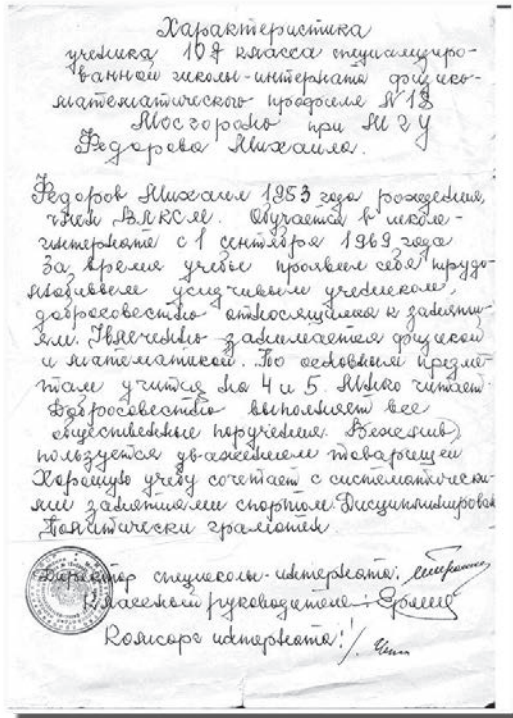 Характеристика
ученика 10 класса специализиро-
ванной школы-интерната физико-
математического профиля N 18
Мосгороно при МГУ
Федорова Михаила.
Федоров Михаил 1953 года рождения,
член ВЛКСМ. Обучается в школе-
интернате с 1 сентября 1969 года
За время учебы проявил себя трудо-
любивым усидчивым учеником,
добросовестно относящимся к заняти-
ям. Увлеченно занимается физикой
и математикой. По основным предме-
там учится на 4 и 5. Много читает.
Добросовестно выполняет все
общественные поручения. Вежлив,
пользуется уважением товарищей
Хорошую учебу сочетает с систематически-
ми занятиями спортом. Дисциплинирован
Политически грамотен.
Директор спецшколы-интерната:
Классный руководитель:
Комсорг интерната: